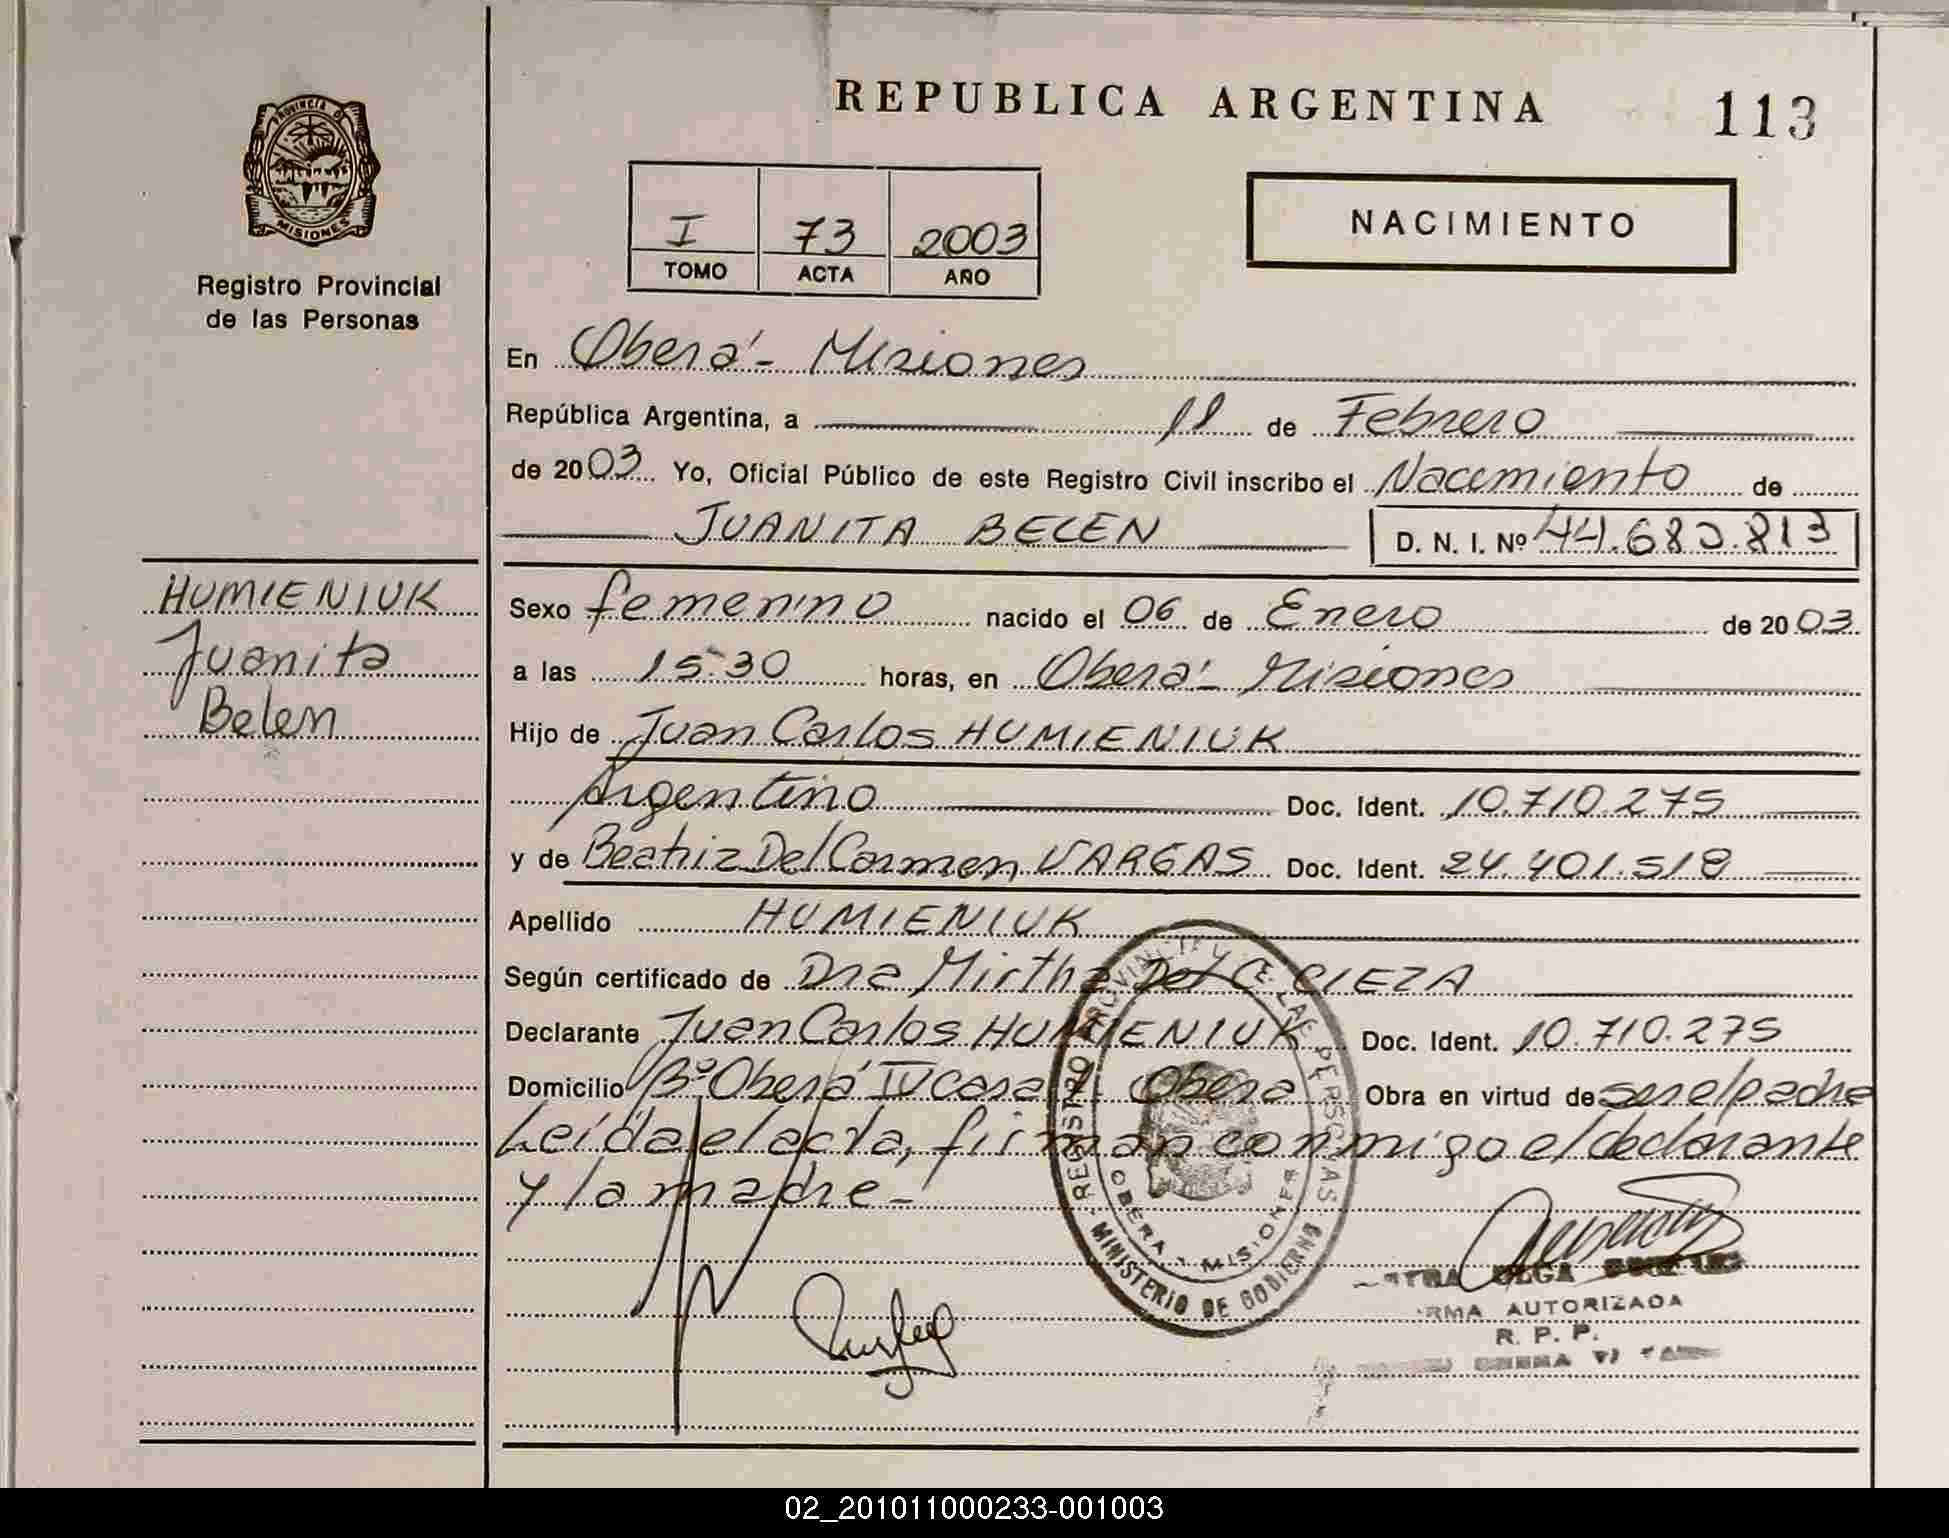 PROVINCIA DE
MISIONES
Registro Provincial
de las Personas
REPUBLICA ARGENTINA
113
I 73 2003
TOMO ACTA AÑO
NACIMIENTO
En Oberá - Misiones
República Argentina, a 11 de Febrero
de 2003 Yo, Oficial Público de este Registro Civil inscribo el Nacimiento de
JUANITA BELEN D. N. I. Nº
HUMIENIUK
Juanita
Belen
Sexo femenino nacido el 06 de Enero de 2003
a las 15:30 horas, en Oberá - Misiones
Hijo de Juan Carlos HUMIENIUK
Argentino Doc. Ident. 10.710.275
y de Beatriz Del Carmen VARGAS Doc. Ident. 24.401.518
Apellido HUMIENIUK
Según certificado de Dra Mirtha Del C CIEZA
Declarante Juan Carlos HUMIENIUK Doc. Ident. 10.710.275
Domicilio Bº Oberá IV casa Obera Obra en virtud de ser el padre
Leída el acta, firman conmigo el declarante
y la madre -
REGISTRO PROVINCIAL DE LAS PERSONAS
OBERA - MISIONES
MINISTERIO DE GOBIERNO
OLGA
AUTORIZADA
R. P. P.
02_201011000233-001003